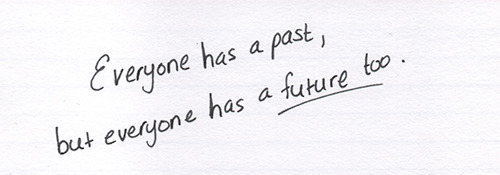 Everyone has a past,
but everyone has a future too.